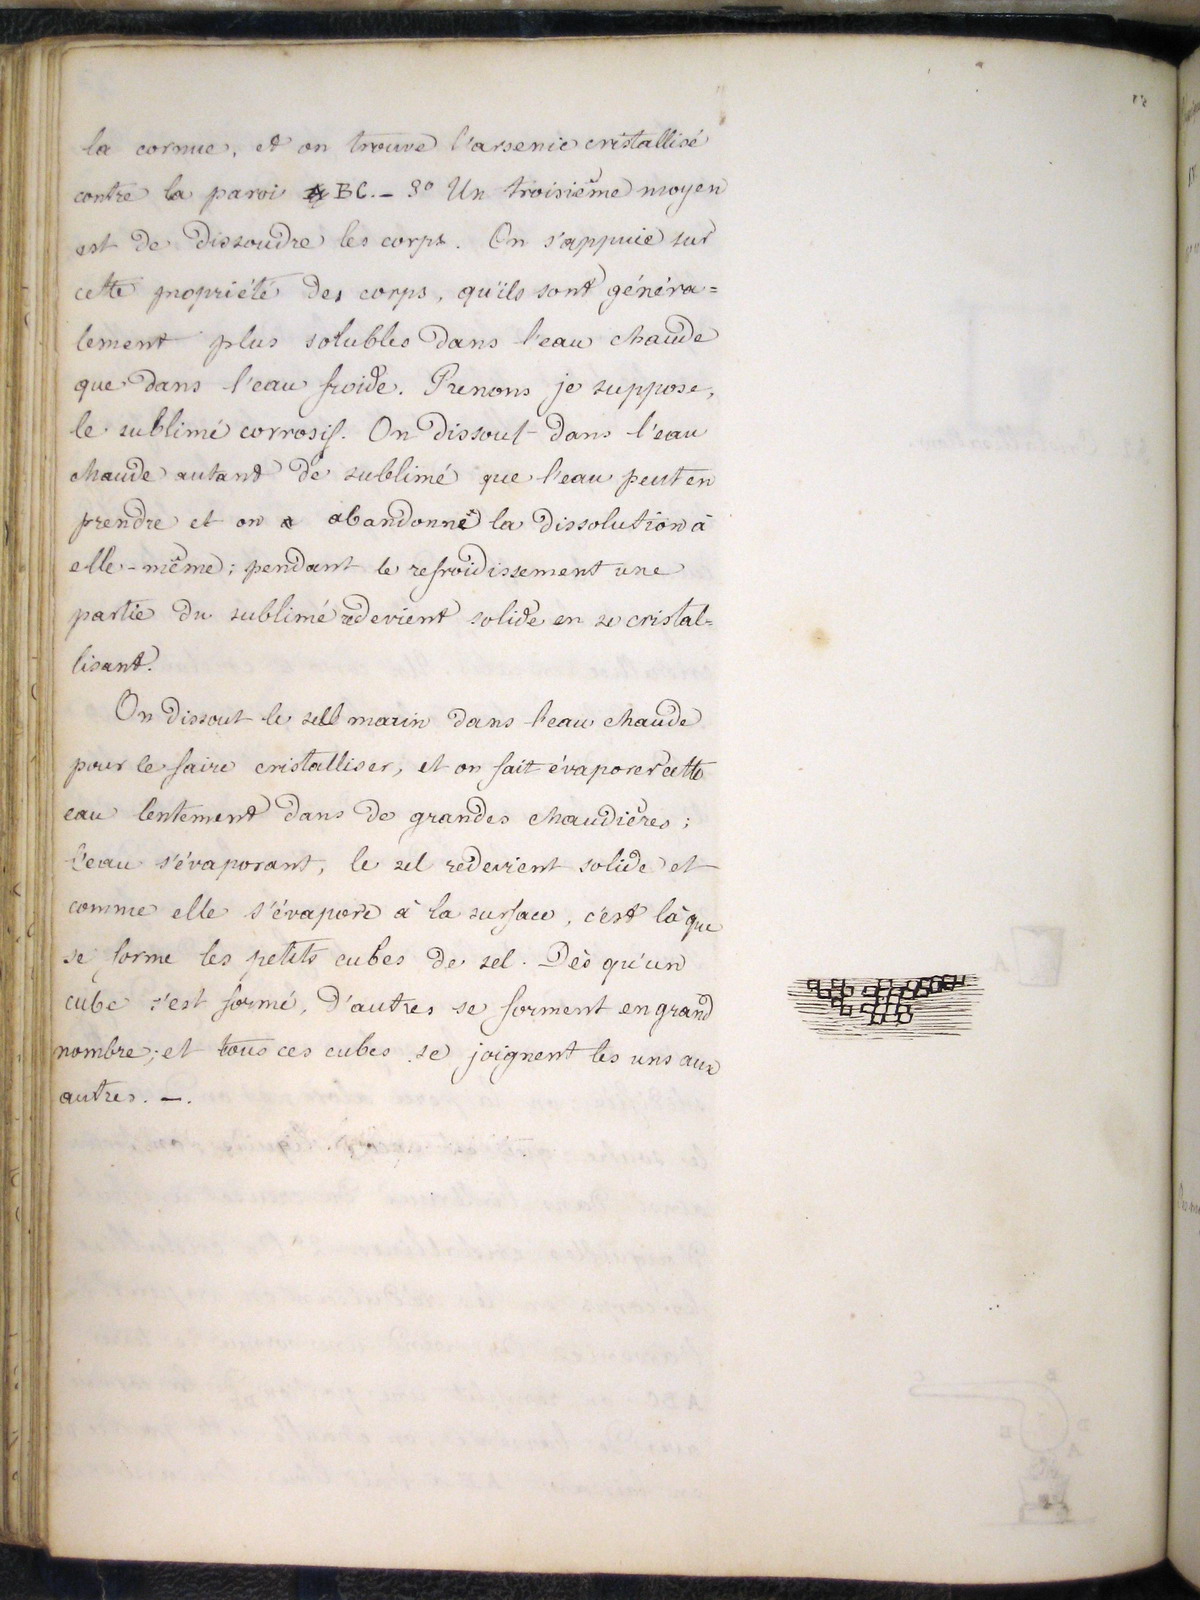 la cornue, et on trouve l'arsenic cristallisé
contre la paroi BC. – 3º Un troisième moyen
est de dissoudre les corps. On s'appuie sur
cette propriété des corps, qu'ils sont généra=
lement plus solubles dans l'eau chaude
que dans l'eau froide. Prenons je suppose,
le sublimé corrosif. On dissout dans l'eau
chaude autant de sublimé que l'eau peut en
prendre et on abandonne la dissolution à
elle-même; pendant le refroidissement une
partie du sublimé redevient solide en se cristal=
lisant.
On dissout le sel marin dans l'eau chaude
pour le faire cristalliser, et on fait évaporer cette
eau lentement dans de grandes chaudières;
l'eau s'évaporant, le sel redevient solide et
comme elle s'évapore à la surface, c'est là que
se forme les petits cubes de sel. Dès qu'un
cube s'est formé, d'autres se forment en grand
nombre; et tous ces cubes se joignent les uns aux
autres. –.